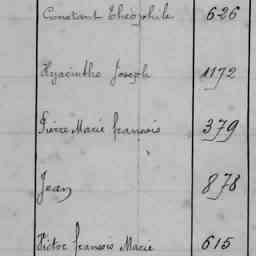 Constant Théophile 626
Hyacinthe Joseph 1172
Pierre Marie françois 379
Jean 878
Victor françois Marie 615